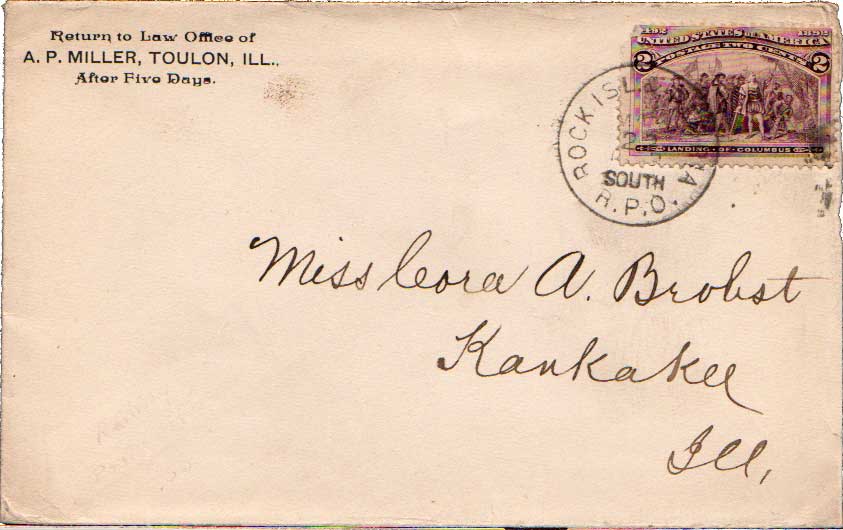 Return to Law Office of
A. P. MILLER, TOULON, ILL.,
After Five Days.
1492 1892
UNITED STATES OF AMERICA
POSTAGE TWO CENTS
2 2
LANDING·OF·COLUMBUS
ROCK ISL
SOUTH
R.P.O.
Miss Cora A. Brobst
Kankakee
Ill,